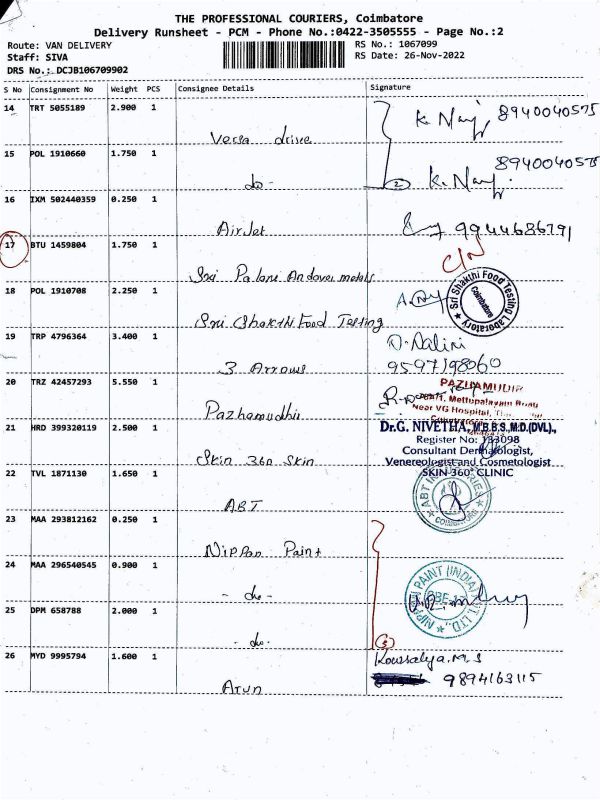 THE PROFESSIONAL COURIERS, Coimbatore
Delivery Runsheet - PCM - Phone No.:0422-3505555 - Page No.:2
Route: VAN DELIVERY
RS No.: 1067099
Staff: SIVA
RS Date: 26-Nov-2022
DRS No.: DCJB106709902
S No Consignment No Weight PCS Consignee Details Signature
14 TRT 5055189 2.900 1
Versa drive
8940040575
15 POL 1910660 1.750 1
do-
2
8940040575
16 IXM 502440359 0.250 1
AirJet
9944686791
17 BTU 1459804 1.750 1
Sri Palani Andaver metals
C/N
18 POL 1910708 2.250 1
Sri Shakthi Food Testing
Sri Shakthi Food Testing Laboratory
Coimbatore
19 TRP 4796364 3.400 1
3 Arrows
D. Nalini
9597198060
20 TRZ 42457293 5.550 1
Pazhamudhir
PAZHAMUDIR
Mettupalayam Road
Near VG Hospital,
21 HRD 399320119 2.500 1
Skin 360 Skin
Dr.G. NIVETHA, M.B.B.S.,M.D.(DVL).,
Register No: 133098
Consultant Dermatologist,
Venereologist and Cosmetologist
SKIN 360° CLINIC
22 TVL 1871130 1.650 1
ABT
ABT INDUSTRIES
COIMBATORE
23 MAA 293812162 0.250 1
Nippon Paint
24 MAA 296540545 0.900 1
- do -
NIPPON PAINT (INDIA) PVT. LTD.,
25 DPM 658788 2.000 1
- do -
3
26 MYD 9995794 1.600 1
Arun
Kowsalya.M.S
9894163115